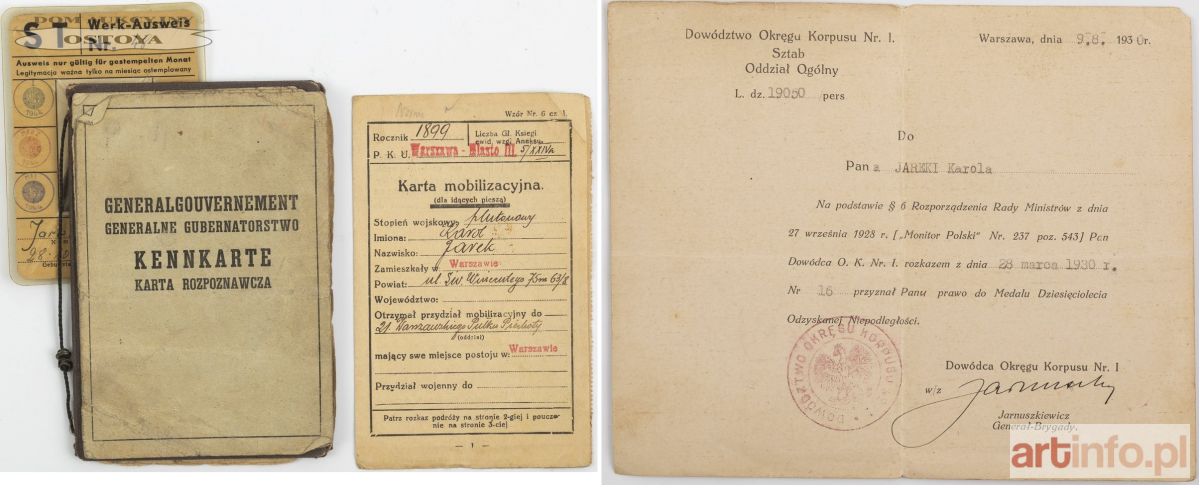 DOM AUKCYJNY
OSTOYA
ST Werk-Ausweis
Nr.
Ausweis nur gültig für gestempelten Monat
Legitymacja ważna tylko na miesiąc ostemplowany
GENERALGOUVERNEMENT
GENERALNE GUBERNATORSTWO
KENNKARTE
KARTA ROZPOZNAWCZA
Wzór Nr. 6 cz. I.
Rocznik 1899
Liczba Gł. Księgi
ewid. wzgl. Aneksu
P. K. U. Warszawa - Miasto III 5/XXIVa
Karta mobilizacyjna.
(dla idących pieszą)
Stopień wojskowy: plutonowy
Imiona: Karol
Nazwisko: Jarek
Zamieszkały w Warszawie
Powiat: ul Św Wincentego 75m 63/8
Województwo:
Otrzymał przydział mobilizacyjny do
21 Warszawskiego Pułku Piechoty
(oddział)
mający swe miejsce postoju w: Warszawie
Przydział wojenny do
Patrz rozkaz podróży na stronie 2-giej i poucze-
nie na stronie 3-ciej
— 1 —
Dowództwo Okręgu Korpusu Nr. I.
Sztab
Oddział Ogólny
L. dz. 19050 pers
Warszawa, dnia 9.8. 1930r.
Do
Pana JAREKI Karola
Na podstawie § 6 Rozporządzenia Rady Ministrów z dnia
27 września 1928 r. [„Monitor Polski" Nr. 237 poz. 543] Pan
Dowódca O. K. Nr. I. rozkazem z dnia 28 marca 1930 r.
Nr 16 przyznał Panu prawo do Medalu Dziesięciolecia
Odzyskanej Niepodległości.
DOWÓDZTWO OKRĘGU KORPUSU Nr. I.
Dowódca Okręgu Korpusu Nr. I
w/z
Jarnuszkiewicz
Generał-Brygady.
artinfo.pl